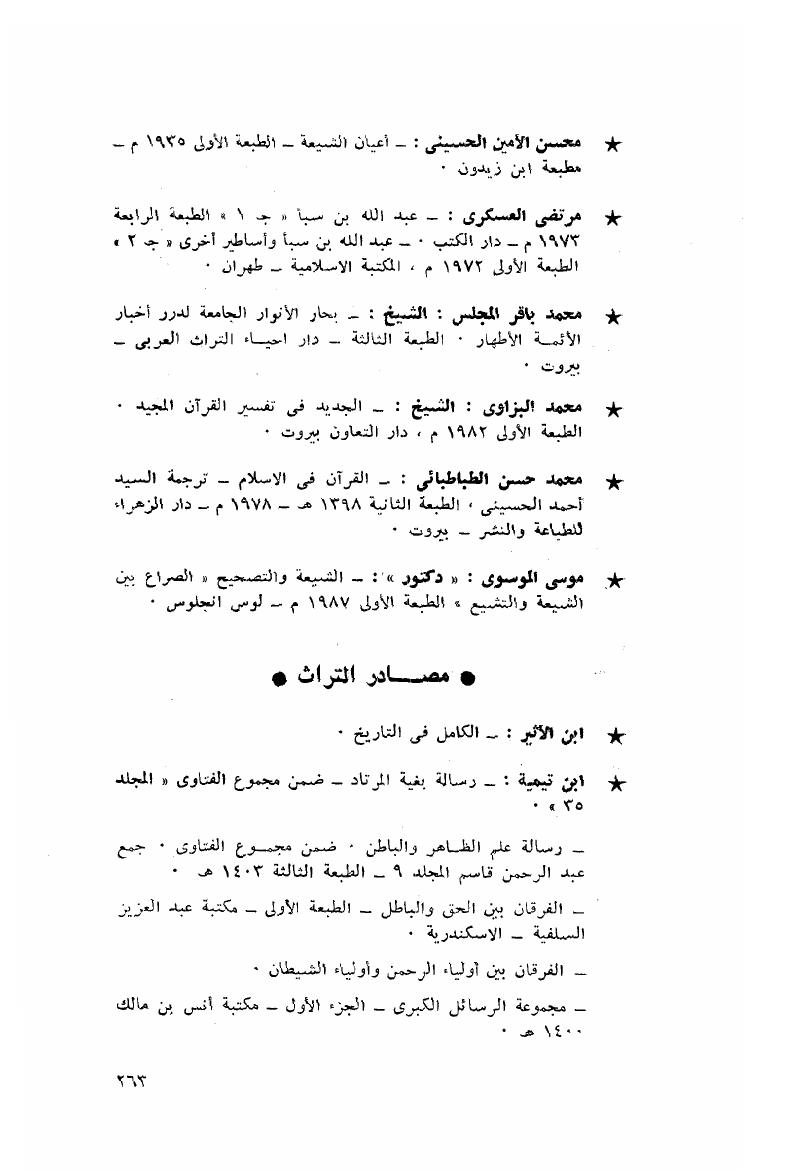 ★ محسن الأمين الحسيني : ـ أعيان الشيعة ـ الطبعة الأولى ١٩٣٥ م ـ
مطبعة ابن زيدون ٠
★ مرتضى العسكرى : ـ عبد الله بن سبأ « جـ ١ » الطبعة الرابعة
١٩٧٣ م ـ دار الكتب ٠ ـ عبد الله بن سبأ وأساطير أخرى « جـ ٢ »
الطبعة الأولى ١٩٧٢ م ، المكتبة الاسلامية ـ طهران ٠
★ محمد باقر المجلس : الشيخ : ـ بحار الأنوار الجامعة لدرر أخبار
الأئمـة الأطهار ٠ الطبعة الثالثة ـ دار احيـاء التراث العربى ـ
بيروت ٠
★ محمد البزاوى : الشيخ : ـ الجديد فى تفسير القرآن المجيد ٠
الطبعة الأولى ١٩٨٢ م ، دار التعاون بيروت ٠
★ محمد حسن الطباطبائى : ـ القرآن فى الاسلام ـ ترجمة السيد
أحمد الحسينى ، الطبعة الثانية ١٣٩٨ هـ ـ ١٩٧٨ م ـ دار الزهراء
للطباعة والنشر ـ بيروت ٠
★ موسى الموسوى : « دكتور » : ـ الشيعة والتصحيح « الصراع بين
الشيعة والتشيع » الطبعة الأولى ١٩٨٧ م ـ لوس انجلوس ٠
● مصــادر التراث ●
★ ابن الأثير : ـ الكامل فى التاريخ ٠
★ ابن تيمية : ـ رسالة بغية المرتاد ـ ضمن مجموع الفتاوى « المجلد
٣٥ » ٠
ـ رسالة علم الظـاهر والباطن ٠ ضمن مجمـوع الفتاوى ٠ جمع
عبد الرحمن قاسم المجلد ٩ ـ الطبعة الثالثة ١٤٠٣ هـ ٠
ـ الفرقان بين الحق والباطل ـ الطبعة الأولى ـ مكتبة عبد العزيز
السلفية ـ الاسكندرية ٠
ـ الفرقان بين أولياء الرحمن وأولياء الشيطان ٠
ـ مجموعة الرسائل الكبرى ـ الجزء الأول ـ مكتبة أنس بن مالك
١٤٠٠ هـ ٠
٢٦٣